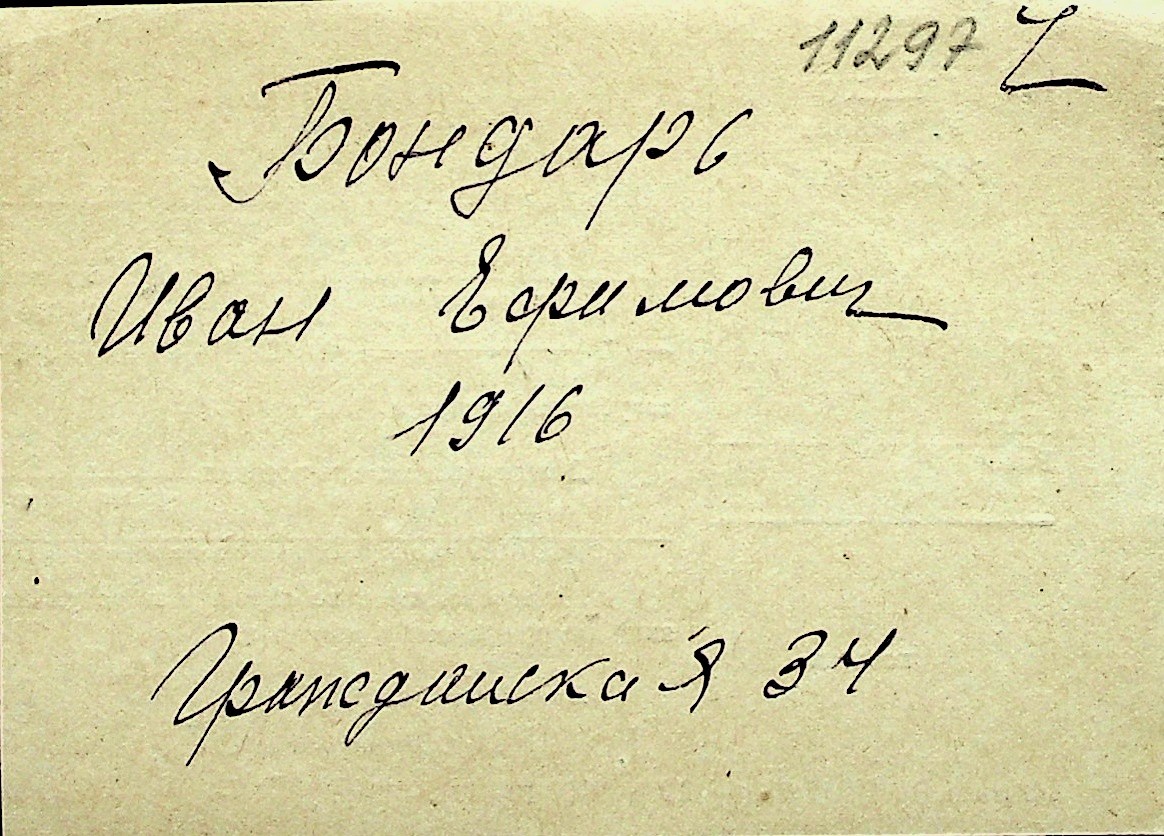 11297
Бондарь
Иван Ефимович
1916
Гражданская 34